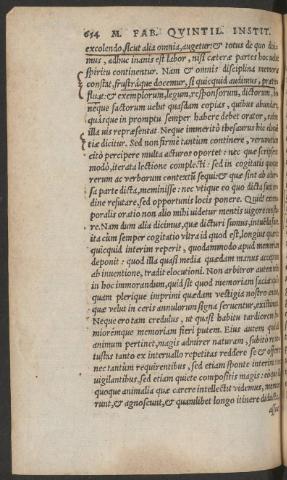 654 M. FAB. QVINTIL. INSTIT.
excolendo, sicut alia omnia, augetur: & totus de quo
mus, adhuc inanis est labor, nisi cæteræ partes hoc
spiritu continentur. Nam & omnis disciplina memoria
constat, frustráque docemur, si quicquid audimus, præter
fluat: & exemplorum, legum, responsorum, dictorum,
neque factorum uelut quasdam copias, quibus abundare,
quásque in promptu semper habere debet orator,
illa uis repræsentat. Neque immeritò thesaurus hic
tiæ dicitur. Sed non firmè tantum continere, uerum
citò percipere multa acturos oportet: nec quæ scripseris
modò, iterata lectione complecti: sed in cogitatis quoque
rerum ac uerborum contextũ sequi: & quæ sint ab
sa parte dicta, meminisse: nec utique eo quo dicta sunt
dine refutare, sed opportunis locis ponere. Quid? extem
poralis oratio non alio mihi uidetur mentis uigore
re. Nam dum alia dicimus, quæ dicturi sumus,
ita cùm semper cogitatio vltra id quod est, longius
quicquid interim reperit, quodammodo apud memoriam
deponit: quod illa quasi media quædam manus acceptum
ab inuentione, tradit elocutioni. Non arbitror autem
in hoc immorandum, quid sit quod memoriam faciat:
quam plerique imprimi quædam vestigia nostro
quæ velut in ceris annulorum signa seruentur, existimant.
Neque ero tam credulus, ut quasi habitu tardiorem
mioremque memoriam fieri putem. Eius autem quod
animum pertinet, magis admirer naturam, subitò
tustas tanto ex interuallo repetitas reddere se &
nec tantùm requirentibus, sed etiam sponte interim:
uigilantibus, sed etiam quiete compositis magis:
quoque animalia quæ carere intellectu videntur,
runt, & agnoscunt, & quamlibet longo itinere